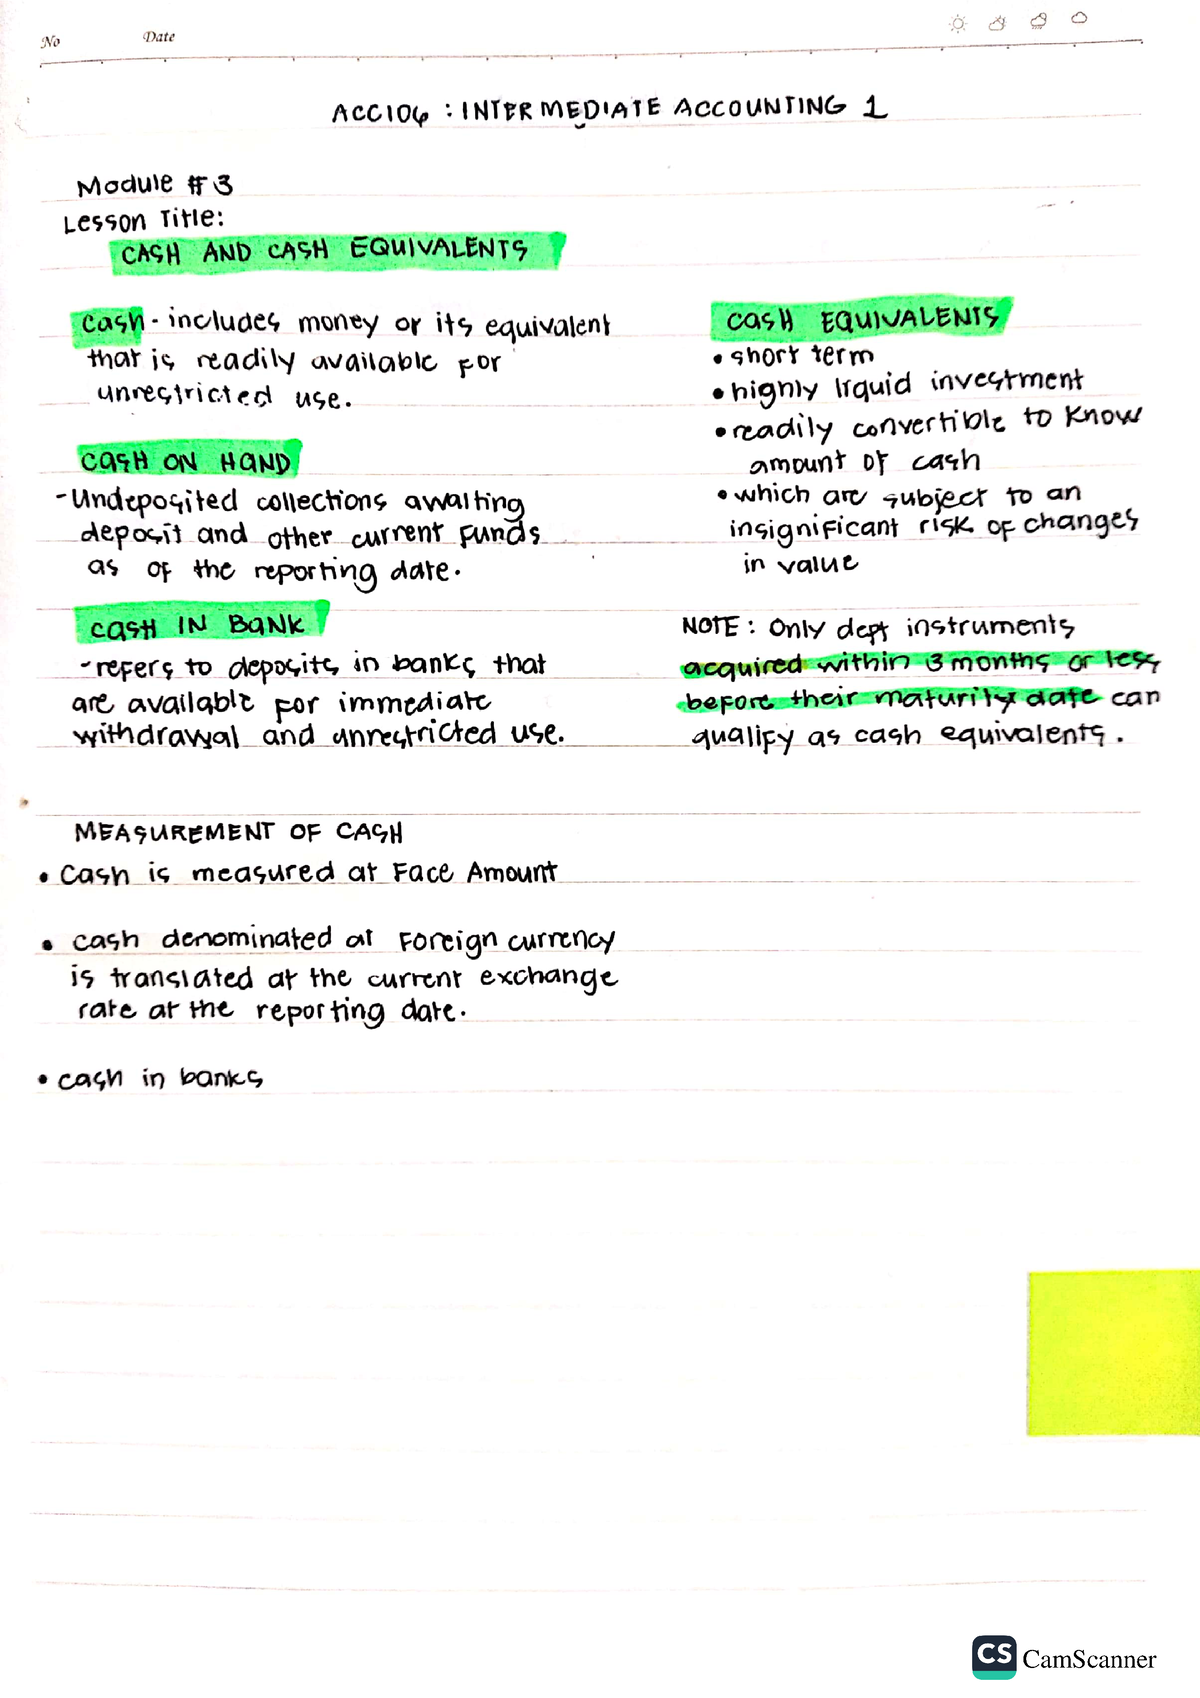 No Date
ACC106 : INTERMEDIATE ACCOUNTING 1
Module #3
Lesson Title:
CASH AND CASH EQUIVALENTS
Cash - includes money or its equivalent
that is readily available for
unrestricted use.
CASH ON HAND
- Undeposited collections awaiting
deposit and other current funds
as of the reporting date.
CASH IN BANK
- refers to deposits in banks that
are available for immediate
withdrawal and unrestricted use.
CASH EQUIVALENTS
• short term
• highly liquid investment
• readily convertible to Know
amount of cash
• which are subject to an
insignificant risk of changes
in value
NOTE : Only dept instruments
acquired within 3 months or less
before their maturity date can
qualify as cash equivalents.
MEASUREMENT OF CASH
• Cash is measured at Face Amount
• cash denominated at Foreign currency
is translated at the current exchange
rate at the reporting date.
• cash in banks
CS CamScanner